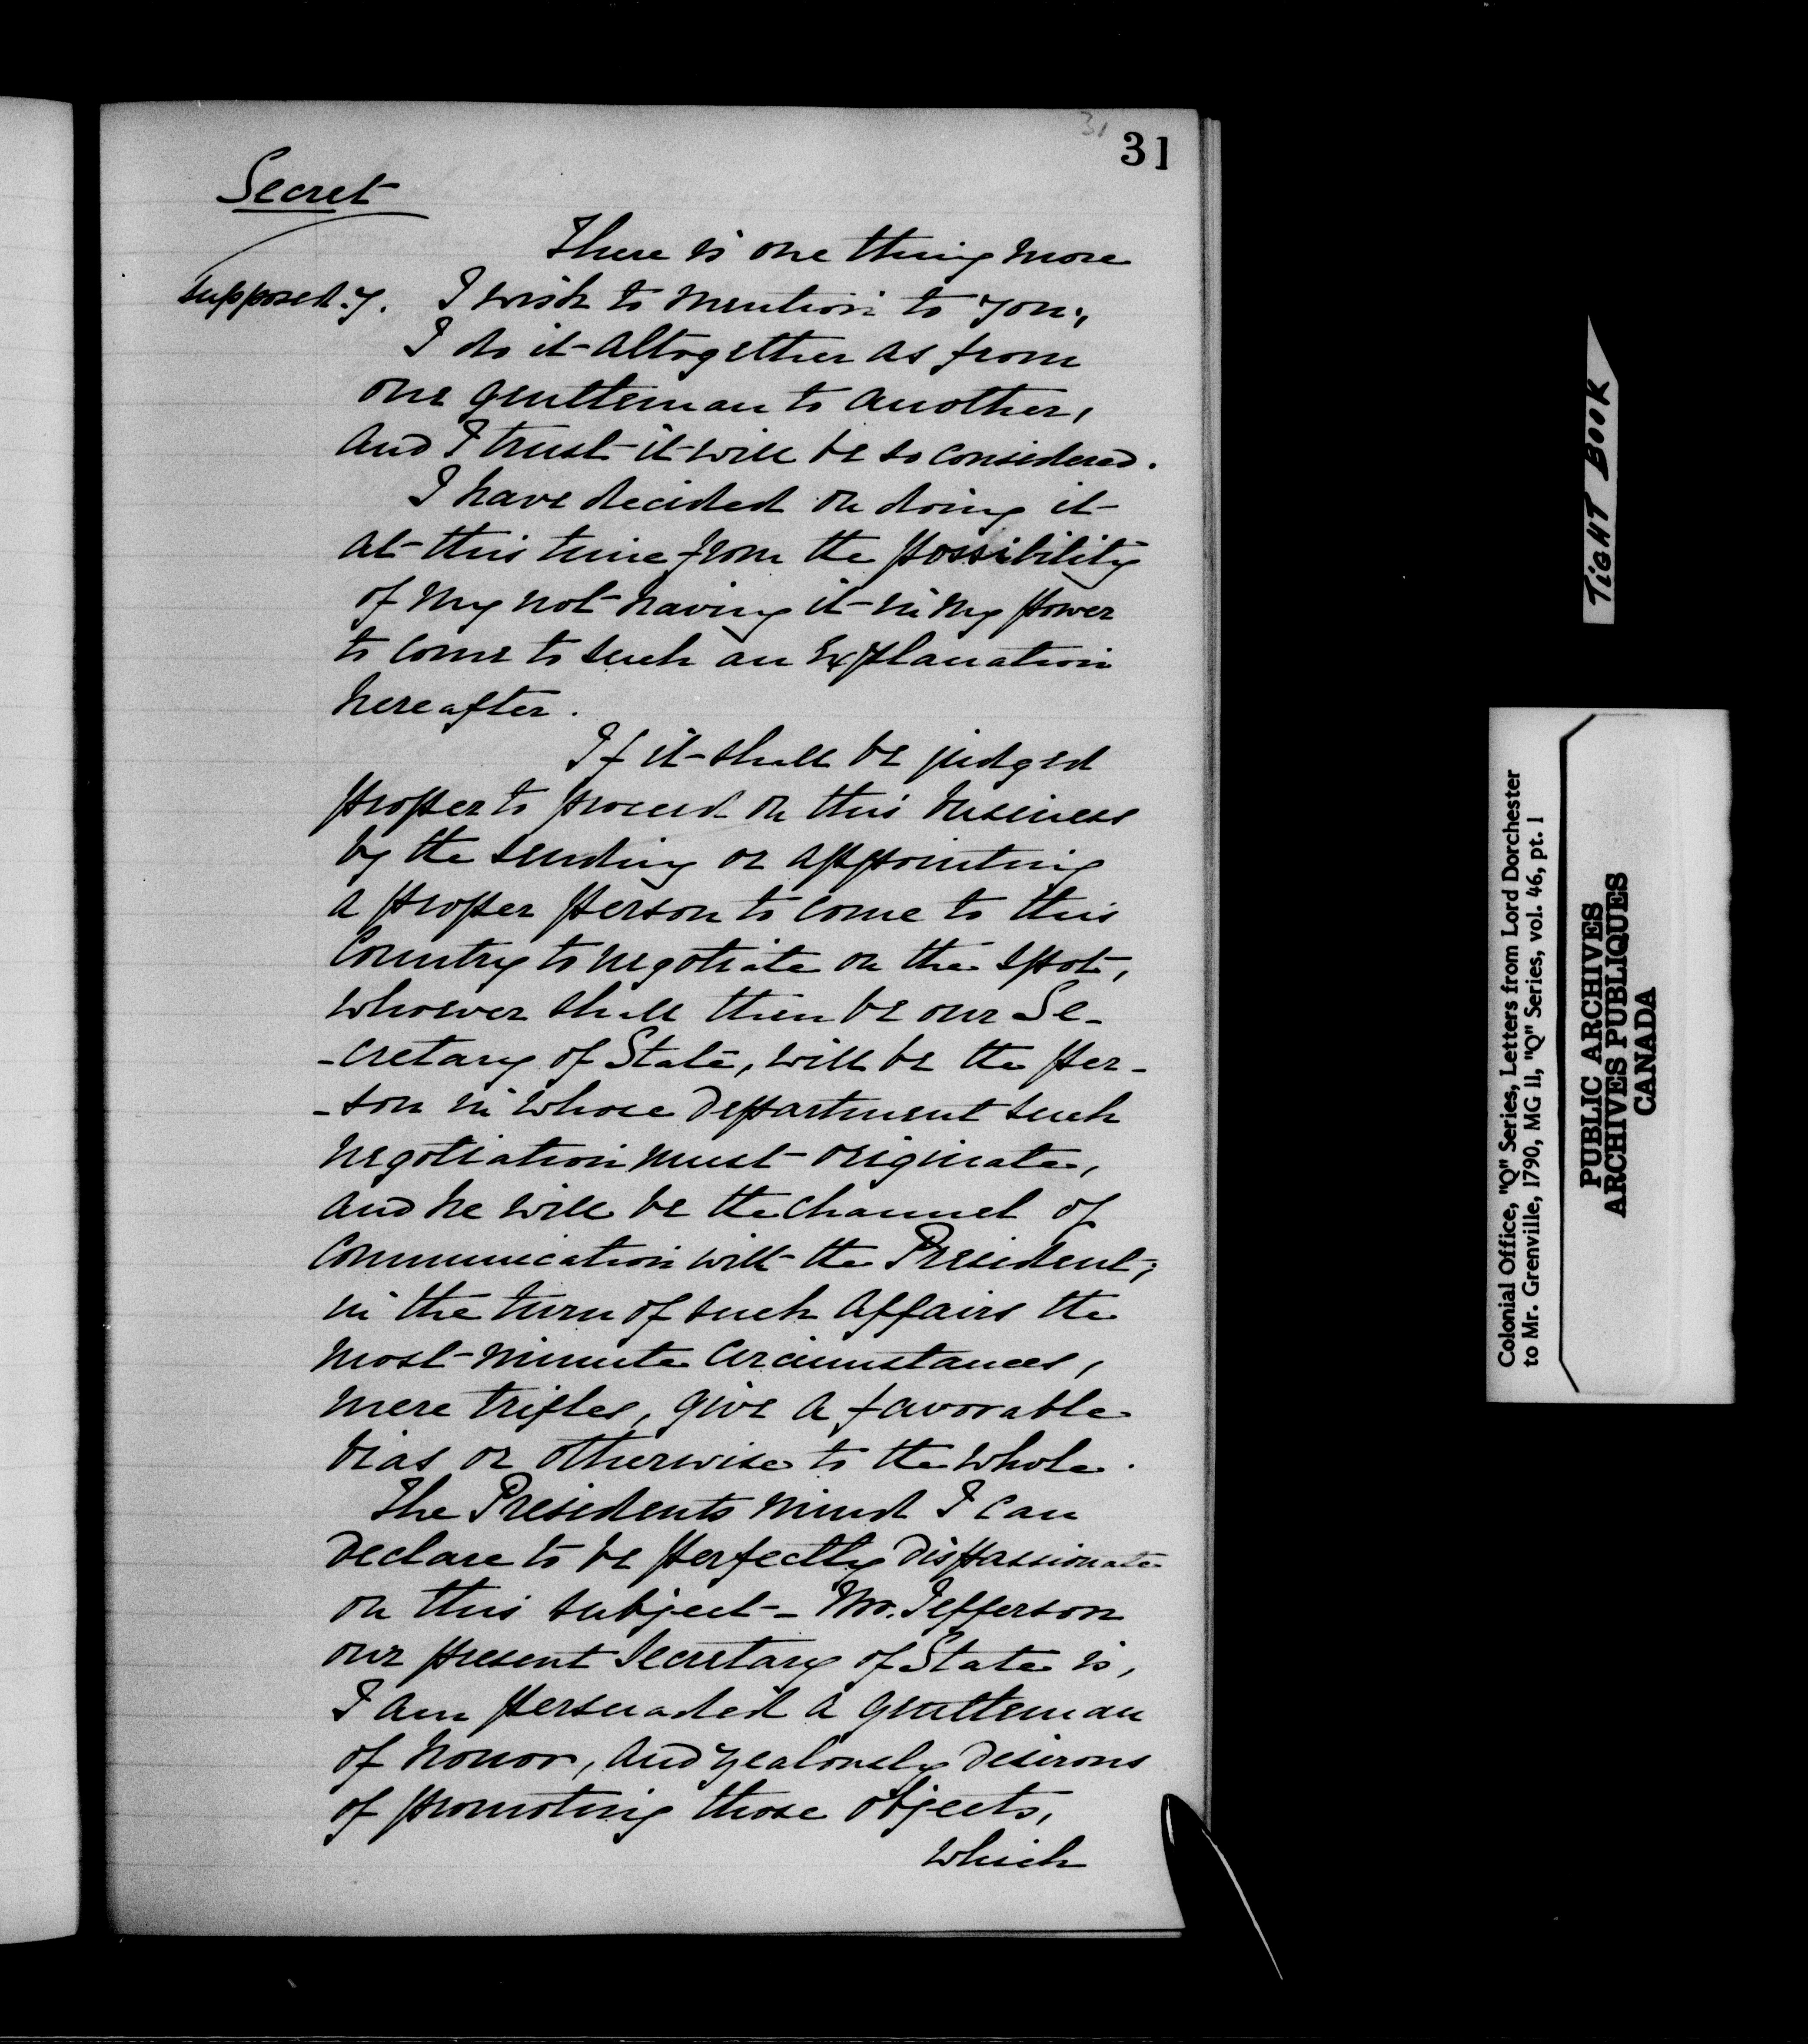 31
31
Secret
There is one thing more
supposed. 7. I wish to mention to you;
I do it altogether as from
one gentleman to another,
and I trust it will be so considered.
I have decided on doing it
at this time from the possibility
of my not having it in my power
to come to such an explanation
hereafter.
If it shall be judged
proper to proceed on this business
by the sending or appointing
a proper person to come to this
Country to negotiate on the spot,
whoever shall then be our Se-
-cretary of State, will be the per-
-son in whose Department such
negotiation must originate,
and he will be the channel of
Communication with the President;
in the turn of such affairs the
most minute circumstances,
mere trifles, give a favorable
bias or otherwise to the whole.
The Presidents mind I can
Declare to be perfectly Dispassionate
on this subject - Mr. Jefferson
our present Secretary of State is,
I am persuaded a gentleman
of honor, and zealously desirous
of promoting those objects,
which
TIGHT BOOK
Colonial Office, "Q" Series, Letters from Lord Dorchester
to Mr. Grenville, 1790, MG 11, "Q" Series, vol. 46, pt. 1
PUBLIC ARCHIVES
ARCHIVES PUBLIQUES
CANADA